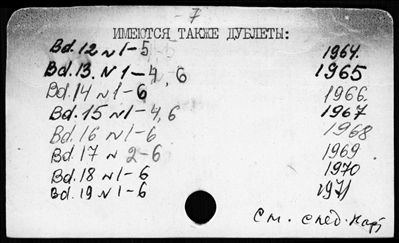 - 7
ИМЕЮТСЯ ТАКЖЕ ДУБЛЕТЫ:
Bd. 12 N 1-5 1964.
Bd. 13. N 1-4, 6 1965
Bd. 14 N 1-6 1966.
Bd. 15 N 1-4, 6 1967
Bd. 16 N 1-6 1968
Bd. 17 N 2-6 1969
Bd. 18 N 1-6 1970
Bd. 19 N 1-6 1971
См. след. карт